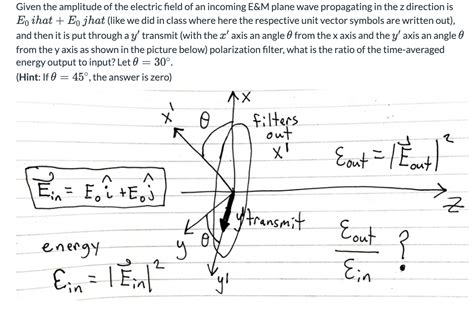 Given the amplitude of the electric field of an incoming E&M plane wave propagating in the z direction is
E₀ ihat + E₀ jhat (like we did in class where here the respective unit vector symbols are written out),
and then it is put through a y′ transmit (with the x′ axis an angle θ from the x axis and the y′ axis an angle θ
from the y axis as shown in the picture below) polarization filter, what is the ratio of the time-averaged
energy output to input? Let θ = 30°.
(Hint: If θ = 45°, the answer is zero)
x
x'
θ
filters
out
x'
Ɛout = |E⃗out|²
E⃗in = E₀ î + E₀ ĵ
z
y' transmit
energy
y
θ
Ɛout
Ɛin
?
Ɛin = |E⃗in|²
y'